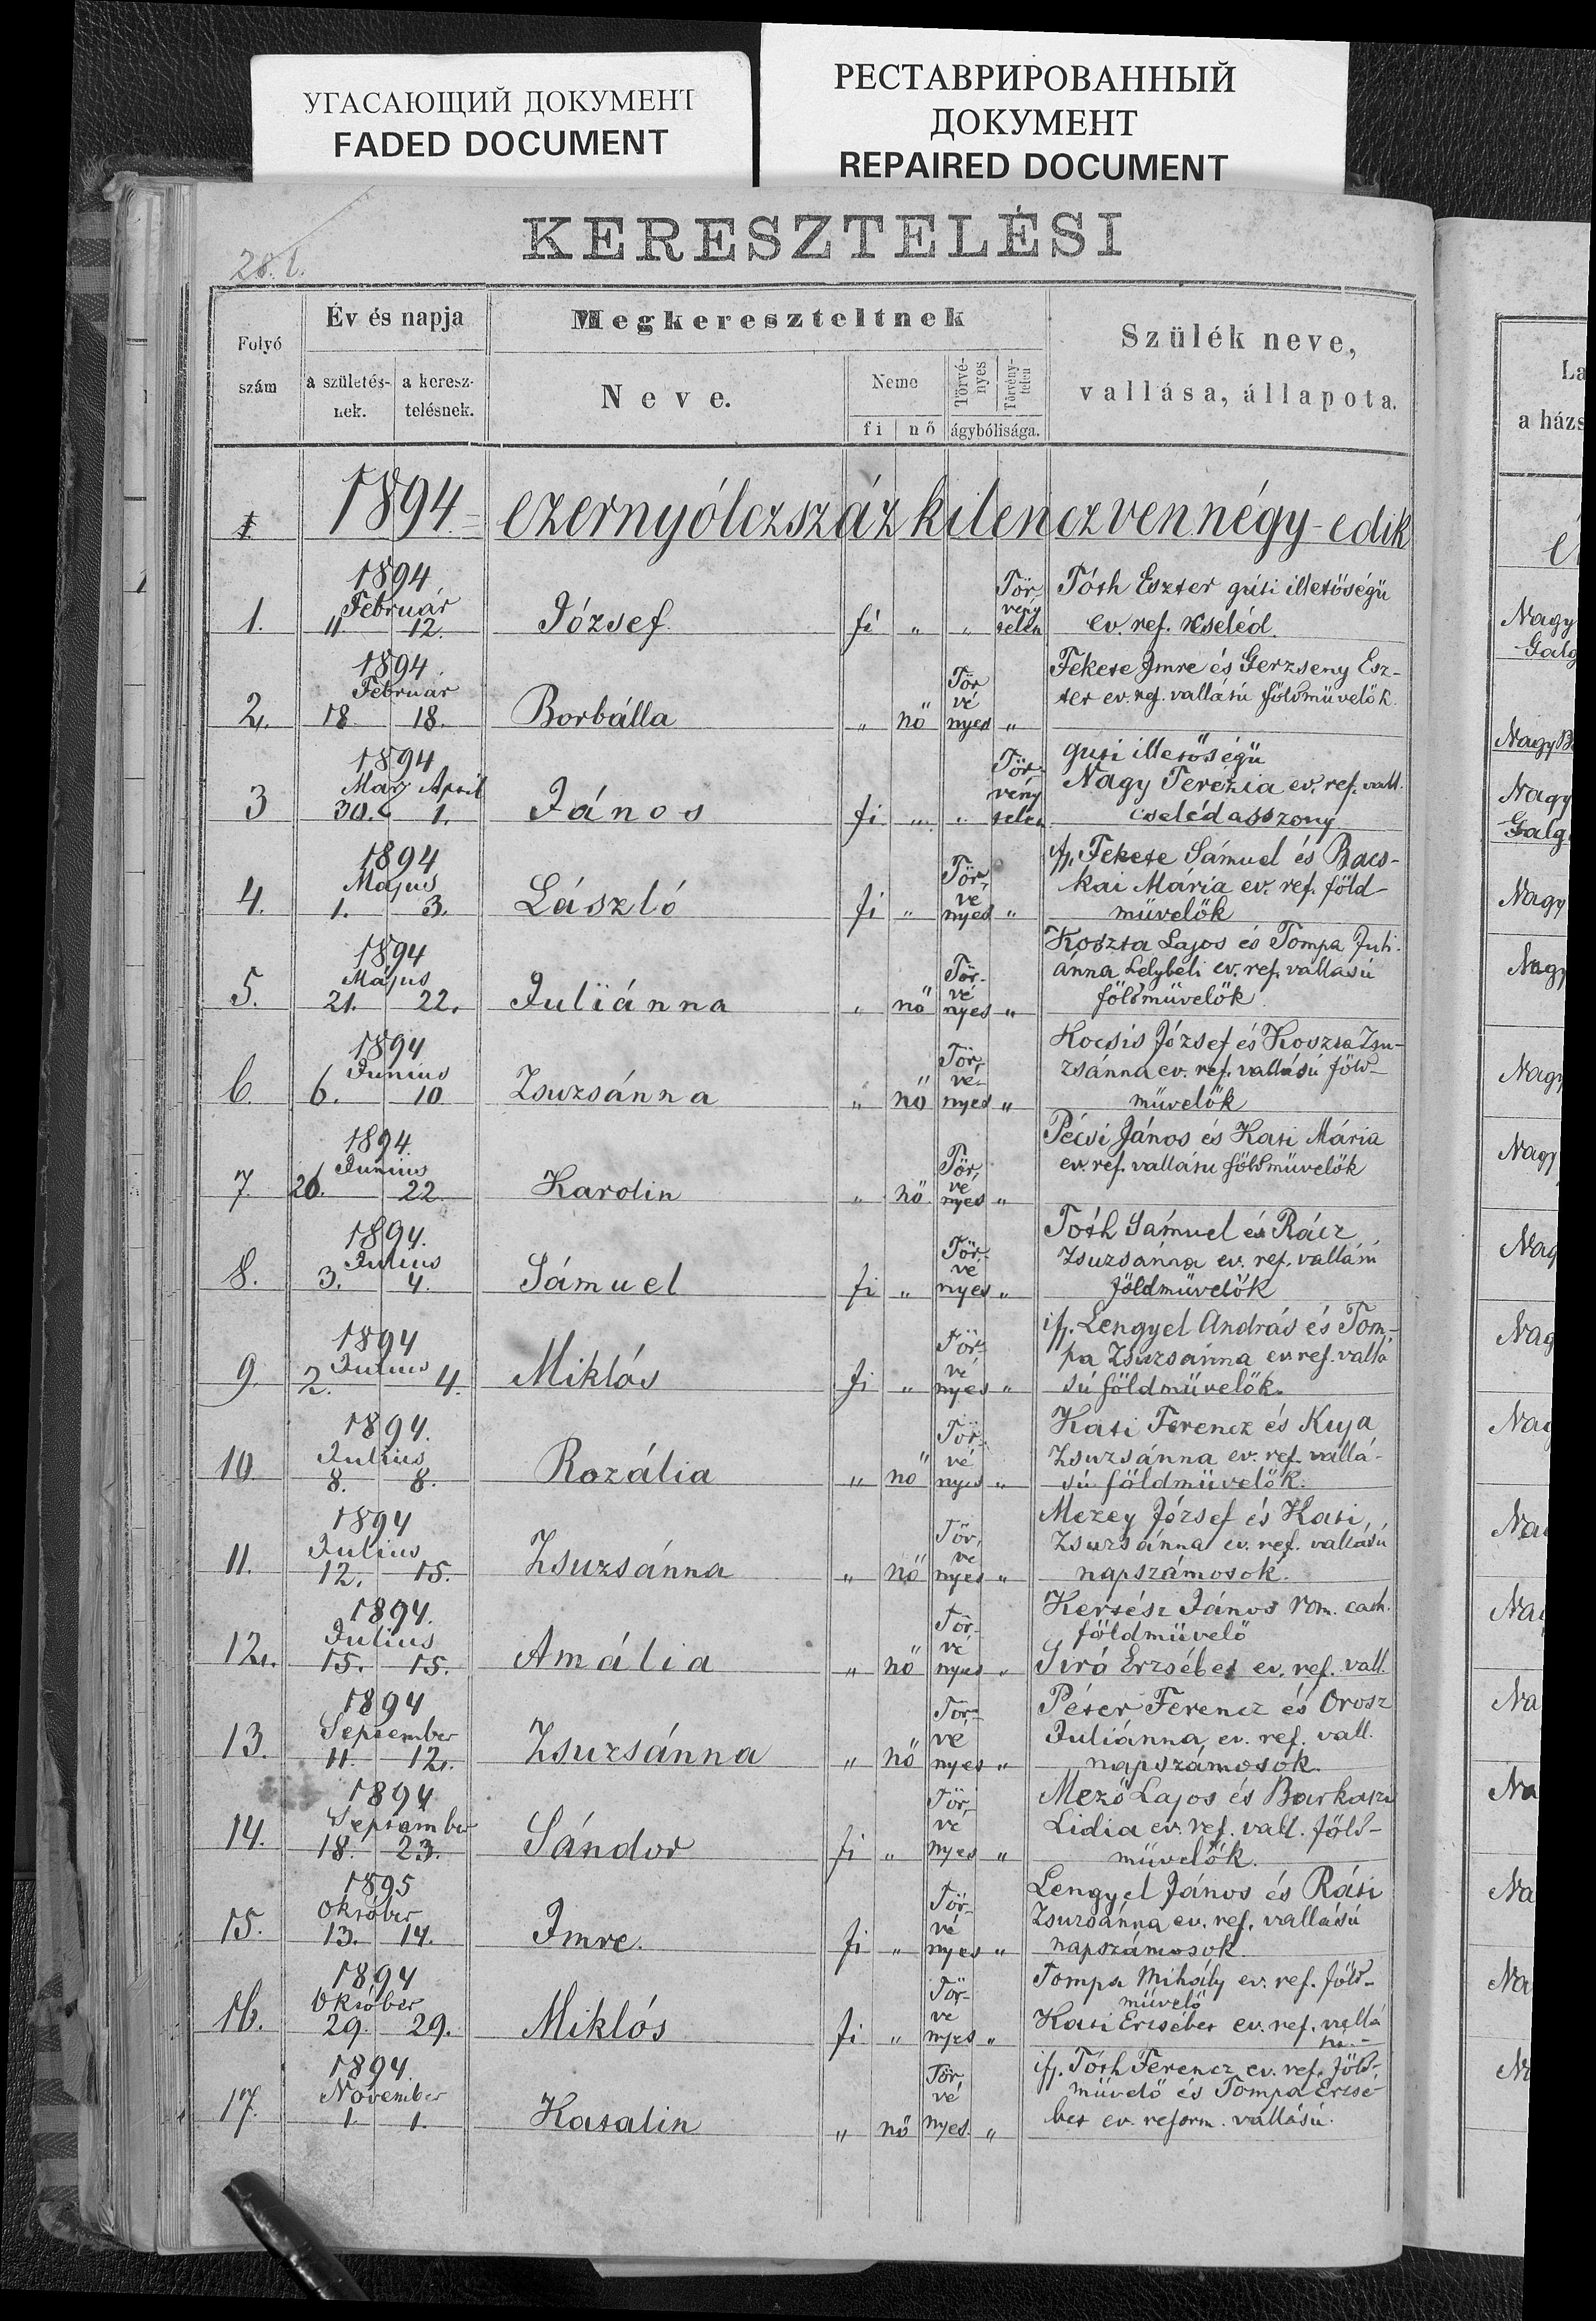 УГАСАЮЩИЙ ДОКУМЕНТ
FADED DOCUMENT
РЕСТАВРИРОВАННЫЙ
ДОКУМЕНТ
REPAIRED DOCUMENT
KERESZTELÉSI
28. l.
Folyó szám
Év és napja
a születés-nek.
a keresz-telésnek.
Megkereszteltnek
Neve.
Neme
fi nő
Törvé-nyes
Törvény-telen
ágybólisága.
Szülék neve,
vallása, állapota.
1894 = ezernyólczszáz kilenczvennégy-edik
1894
Február
1. 11. 12. József fi " " Tör vény telen
Tóth Eszter guti illetőségü
ev. ref. cseléd.
1894
Február
2. 18 18. Borbálla " nő Tör vé nyes "
Fekete Imre és Gerzseny Esz-
ter ev. ref. vallású földmüvelők.
1894
Marz April
3 30. 1. János fi " " Tör vény telen
guti illetőségü
Nagy Terézia ev. ref. vall.
cselédasszony
1894
Május
4. 1. 3. László fi " Tör vé nyes "
ifj. Fekete Sámuel és Bacs-
kai Mária ev. ref. föld-
müvelők
1894
Május
5. 21. 22. Juliánna " nő Tör- vé nyes "
Koszta Lajos és Tompa Juli-
ánna Lelybéli ev. ref. vallasú
földmüvelők
1894
Junius
6. 6. 10 Zsuzsánna " nő Tör vé- nyes "
Kocsis József és Koszta Zsu-
zsánna ev. ref. vallású föld-
müvelők
1894.
Junius
7. 20. 22. Karolin " nő Tör vé nyes "
Pécsi János és Kati Mária
ev. ref. vallásu földmüvelők
1894.
Julius
8. 3. 4. Sámuel fi " Tör vé nyes "
Tóth Sámuel és Rácz
Zsuzsánna ev. ref. vallású
földmüvelők
1894
Julius
9. 2. 4. Miklós fi " Tör- vé nyes "
ifj. Lengyel András és Tom-
pa Zsuzsánna ev. ref. vallá
sú földmüvelők.
1894.
Julius
10. 8. 8. Rozália " nő Tör- vé nyes "
Kati Ferencz és Kuja
Zsuzsánna ev. ref. vallá-
sú földmüvelők.
1894
Julius
11. 12. 15. Zsuzsánna " nő Tör, ve nyes "
Mezey József és Kati
Zsuzsánna ev. ref. vallású
napszámosok.
1894.
Julius
12. 15. 15. Amália " nő Tör- vé nyes "
Kertész János rom. cath.
földmüvelő
Siró Erzsébet ev. ref. vall.
1894
September
13. 11. 12. Zsuzsánna " nő Tör- vé nyes "
Péter Ferencz és Orosz
Juliánna ev. ref. vall.
napszámosok.
1894
September
14. 18. 23. Sándor fi " Tör, vé nyes "
Mező Lajos és Barkaszi
Lidia ev. ref. vall. föld-
müvelők.
1895
Október
15. 13. 14. Imre. fi " Tör- vé nyes "
Lengyel János és Ráti
Zsuzsánna ev. ref. vallású
napszámosok.
1894
Október
16. 29. 29. Miklós fi " Tör- ve nyes "
Tompa Mihály ev. ref. föld-
müvelő
Kati Erzsébet ev. ref. vallá
sú.-
1894.
November
17. 1. 1. Katalin " nő Tör vé nyes. "
ifj. Tóth Ferencz ev. ref. föld-
müvelő és Tompa Erzsé-
bet ev. reform. vallású.
La
a házs
Nagy
Galg
Nagy B
Nagy
Galg.
Nagy
Nagy
Nagy
Nagy
Nag
Nag
Nag
Na
Na
Na
Na
Na
Na